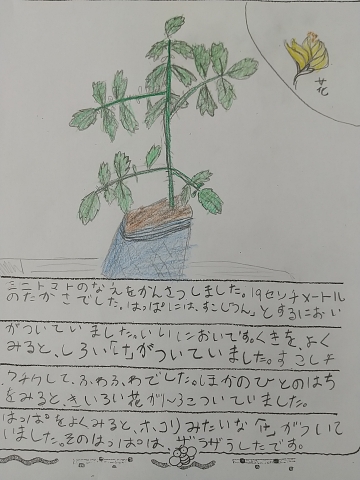 花
ミニトマトのなえをかんさつしました。19センチメートル
のたかさでした。はっぱには、すこしつんとするにおい
がついていました。いいにおいです。くきを、よく
みると、しろい「け」がついていました。すこしチ
クチクして、ふわふわでした。ほかのひとのはち
をみると、きいろい花が1~3こついていました。
はっぱをよくみると、ホコリみたいな「け」がついて
いました。そのはっぱは、ザラザラしたです。